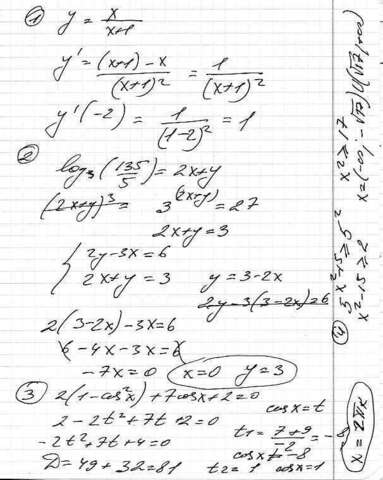 ① y = x/(x+1)
y' = ((x+1) - x)/(x+1)² = 1/(x+1)²
y'(-2) = 1/(1-2)² = 1
②
log₃(135/5) = 2x+y
(2x+y)³ = 3^(2x+y) = 27
2x+y = 3
{ 2y-3x=6
2x+y=3 y=3-2x
2y-3(3-2x)=6
2(3-2x)-3x=6
6-4x-3x=6
-7x=0 x=0 y=3
③ 2(1-cos²x)+7cosx+2=0
2-2t²+7t+2=0 cosx=t
-2t²+7t+4=0 t1 = (7+9)/-2 = -8
cosx≠-8
D=49+32=81 t2=1 cosx=1
x=2πk
④ x²-15≥2 x²≥17
x=(-∞; -√17)∪(√17;+∞)